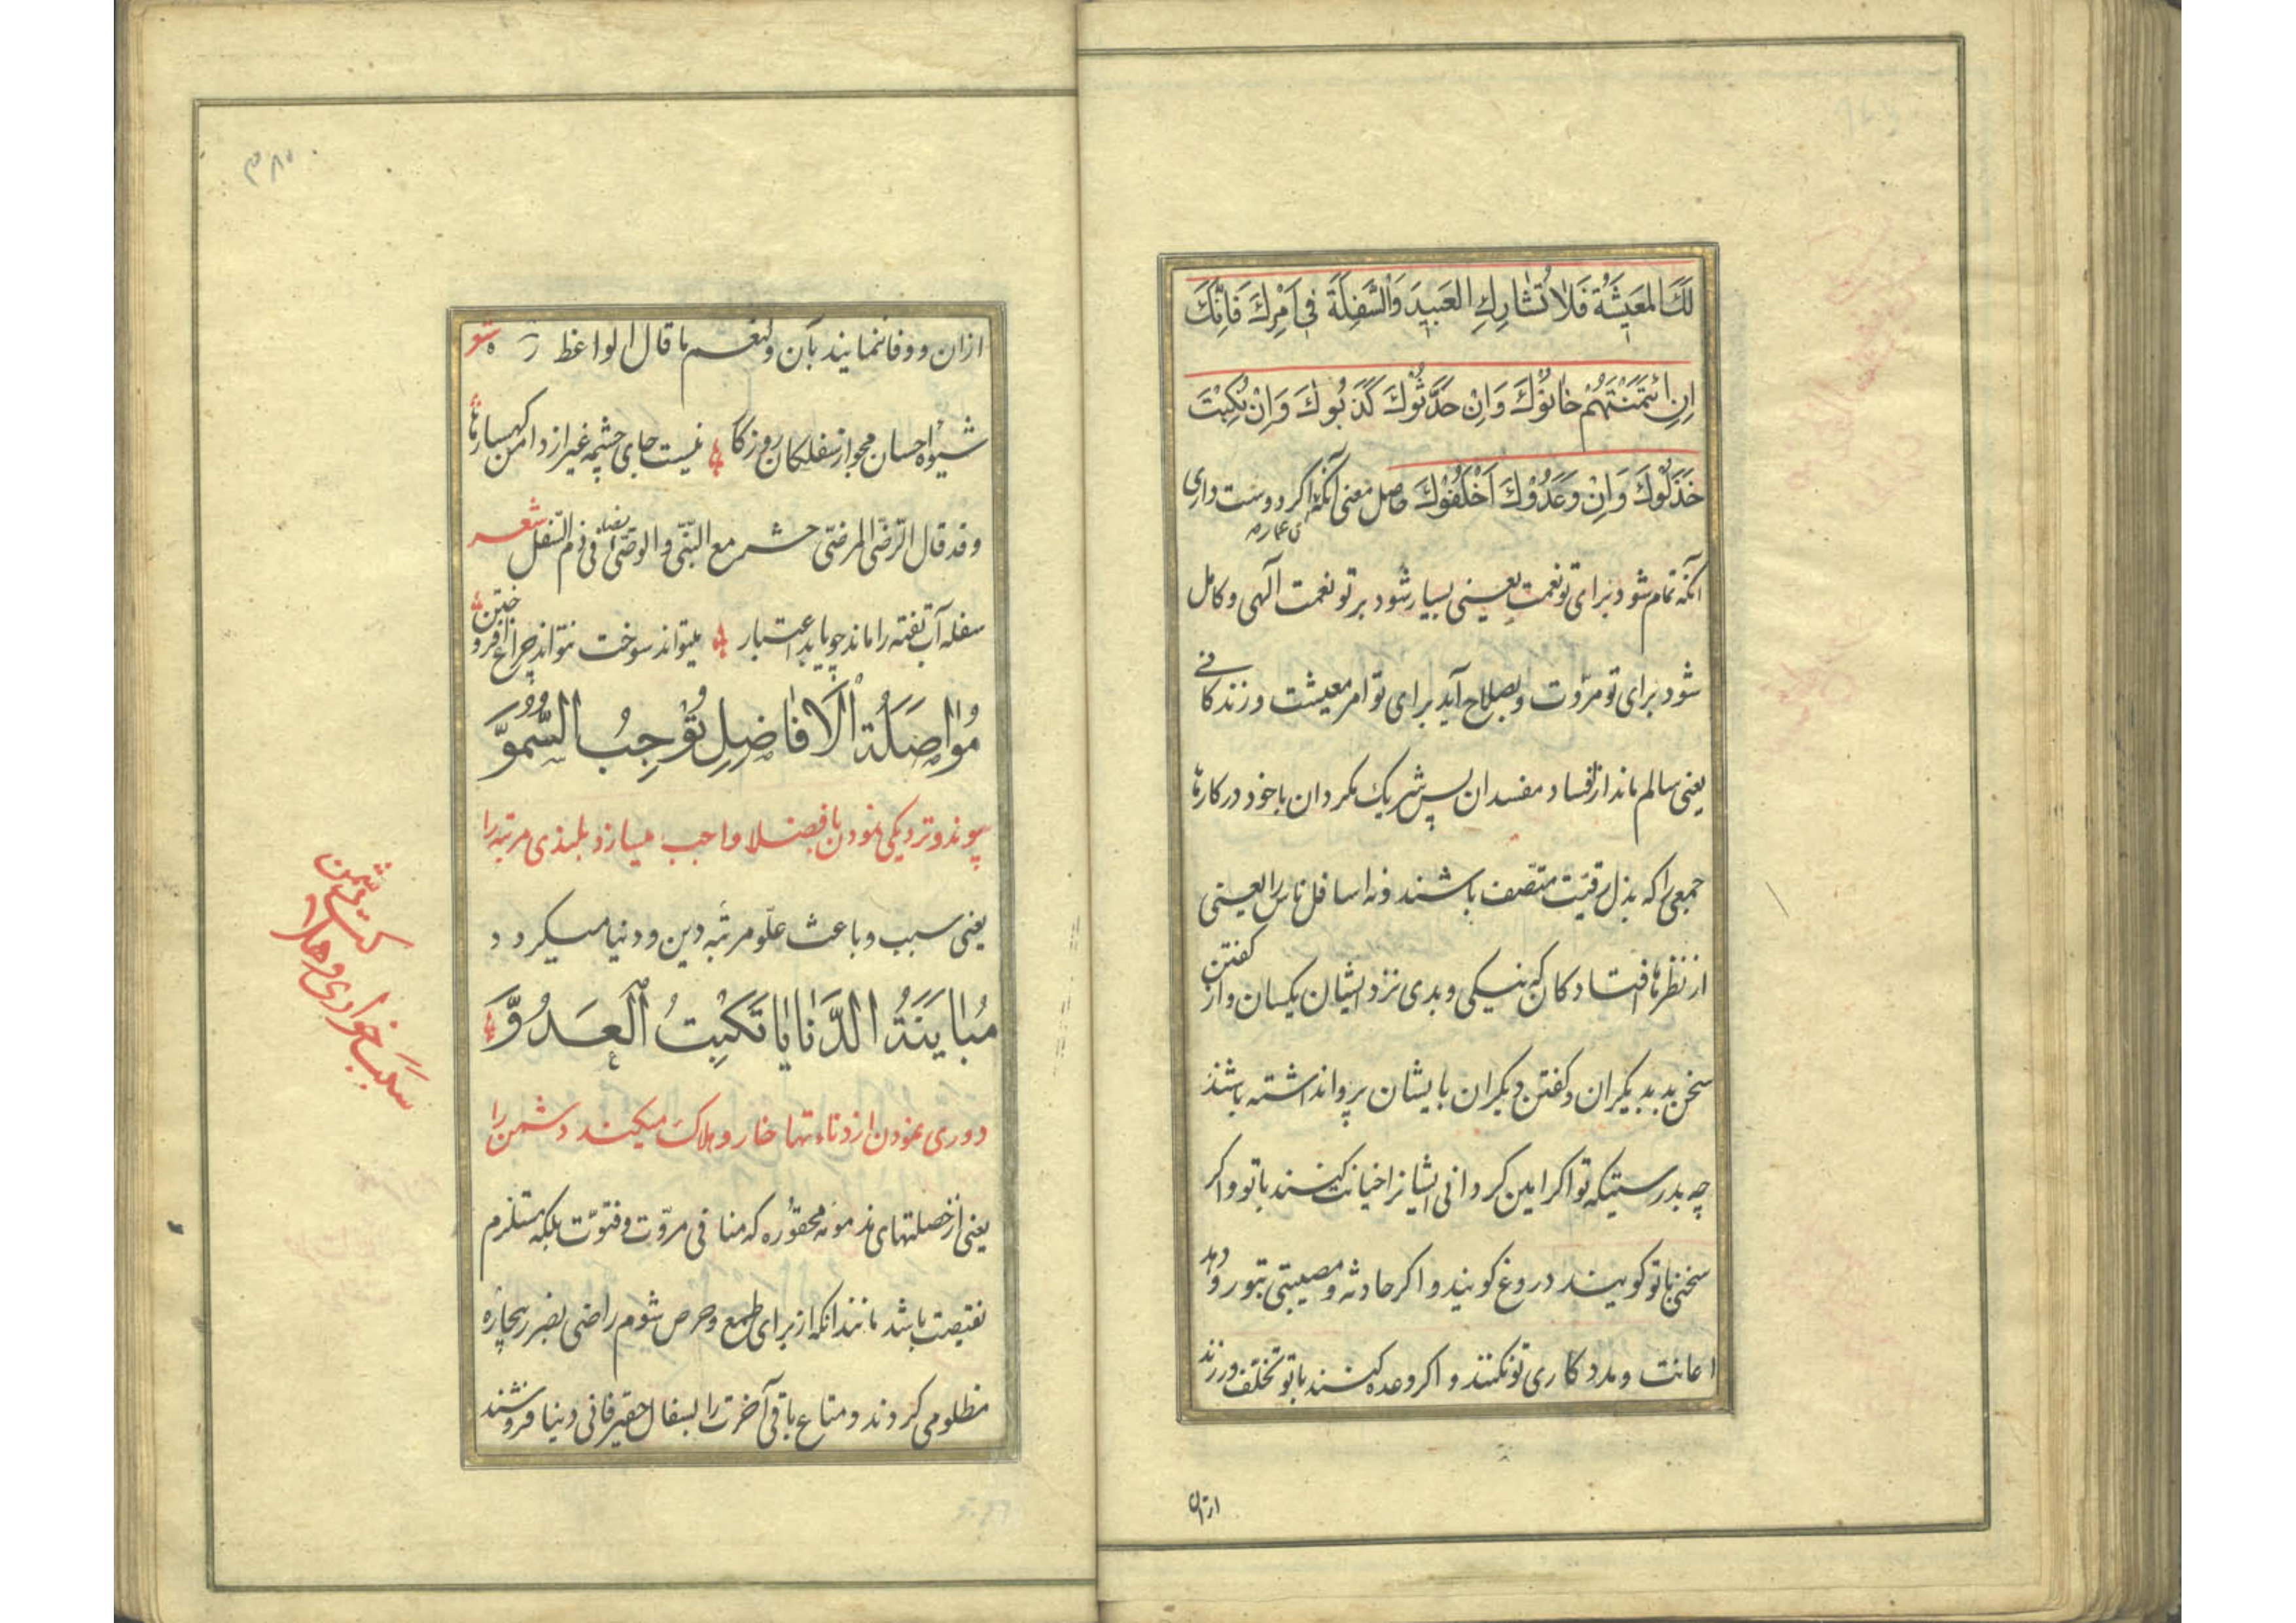 لَكَ المَعيشَةُ فَلا تُشارِكِ العَبيدَ وَالسَّفِلَةَ في اَمْرِكَ فَاِنَّكَ
اِنِ ائْتَمَنْتَهُمْ خانُوكَ وَاِنْ حَدَّثُوكَ كَذَبُوكَ وَاِنْ نُكِبْتَ
خَذَلُوكَ وَاِنْ وَعَدُوْكَ اَخْلَفُوْكَ حاصل معنی آنکه اکر دوست داری
آنکه تمام شود برای تو نعمت یعنی بسیار شود بر تو نعمت آلهی و کامل
شود برای تو مروّت و بصلاح آید برای تو امر معیشت و زندکانے
یعنی سالم ماند از فساد مفسدان پس شریک مکردان با خود در کارها
جمعی را که بذل رقیّت متّصف باشند و نه اسافل ناس را یعنی
از نظرها افتاد کان که نیکی و بدی نزد ایشان یکسان و از کفتن
سخن بد بدیکران و کفتن دیکران بایشان پروا نداشته باشند
چه بدرستیکه تو اکر امین کردانی ایشانرا خیانت کنند با تو و اکر
سخن با تو کویند دروغ کویند و اکر حادثه و مصیبتی بتو رو دهد
اعانت و مددکاری تو نکنند و اکر وعده کنند با تو تخلّف ورزند
ازان
ازان و وفا ننمایند بآن ولنعم ما قال الواعظ شعر
شیوهٔ احسان مجو از سفلکان روزکار نیست جای چشمه غیر از دامن کهسارها
وقد قال الرّضی المرضی حشر مع النبّی والوصّی ایضا فی ذم السّفل شعر
سفله آب تفته را ماند چو یابد اعتبار میتواند سوخت نتواند چراغ افروختن
مُواصَلَةُ الْاَفاضِلِ تُوْجِبُ السُّمُوَّ
پیوند و نزدیکی نمودن با فضلا واجب میسازد بلندی مرتبه را
یعنی سبب و باعث علّو مرتبه دین و دنیا میکردد
مُبايَنَةُ الدَّنايا تَكْبِتُ الْعَدُوَّ
دوری نمودن از دناءتها خار و هلاک میکند دشمن را
یعنی از خصلتهای مذمومه محقوره که منافی مروّت و فتوّت بلکه مستلزم
نقیصت باشد مانند انکه از برای طمع و حرص شوم راضی بضرر بیچاره
مظلومی کردند و متاع باقی آخرت را بسفال حقیر فانی دنیا فروشند
سبب خواری و هلاکت دشمن